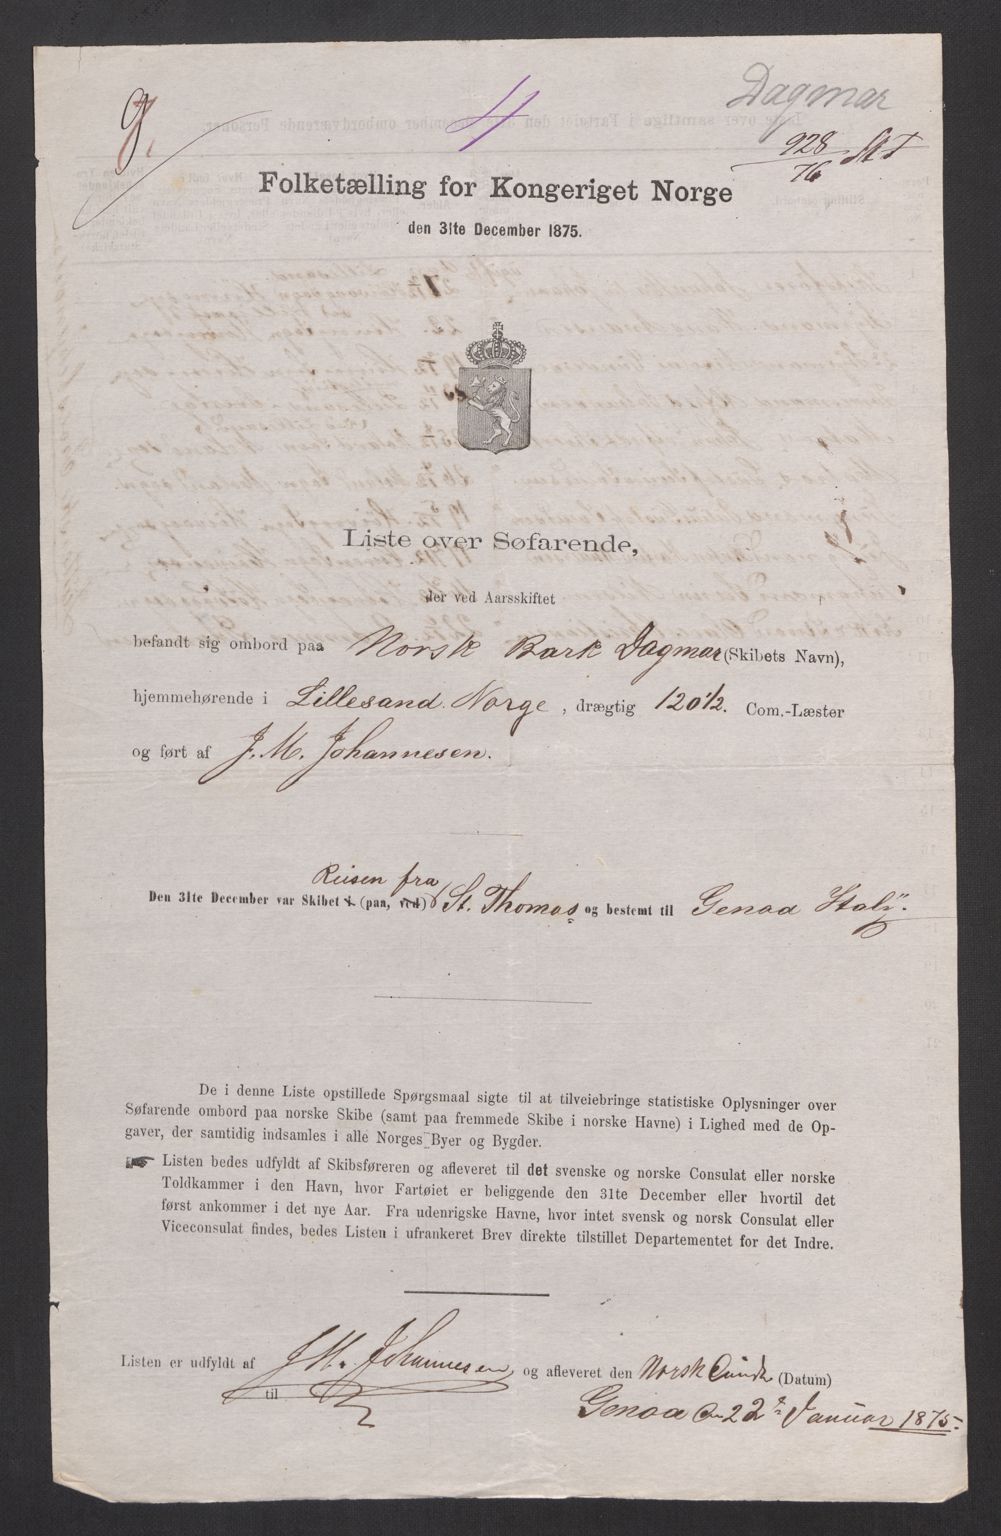 g.
4
Dagmar
928
76
Folketælling for Kongeriget Norge
den 31te December 1875.
Liste over Søfarende,
der ved Aarsskiftet
befandt sig ombord paa Norsk Bark Dagmar (Skibets Navn),
hjemmehørende i Lillesand. Norge, drægtig 120 1/2. Com.-Læster
og ført af J. M. Johannesen.
Reisen fra
Den 31te December var Skibet i (paa, ved) St. Thomas og bestemt til Genoa Italÿ.
De i denne Liste opstillede Spørgsmaal sigte til at tilveiebringe statistiske Oplysninger over
Søfarende ombord paa norske Skibe (samt paa fremmede Skibe i norske Havne) i Lighed med de Op-
gaver, der samtidig indsamles i alle Norges Byer og Bygder.
☛ Listen bedes udfyldt af Skibsføreren og afleveret til det svenske og norske Consulat eller norske
Toldkammer i den Havn, hvor Fartøiet er beliggende den 31te December eller hvortil det
først ankommer i det nye Aar. Fra udenrigske Havne, hvor intet svensk og norsk Consulat eller
Viceconsulat findes, bedes Listen i ufrankeret Brev direkte tilstillet Departementet for det Indre.
Listen er udfyldt af J M. Johannesen og afleveret den Norsk (Datum)
til
Genoa 22 Januar 1875